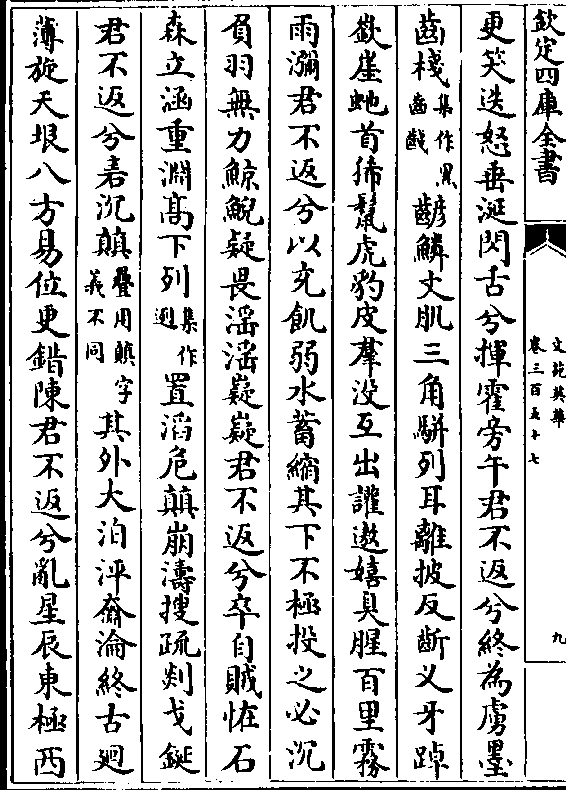 欽定四庫全書
文苑英華
卷三百五十七
九
更笑迭怒垂涎閃舌兮揮霍旁午君不返兮終為虜墨
齒棧集作黑齒齴鱗文肌三角駢列耳離披反齗叉牙踔
嶔崖虵首豨鬣虎豹皮羣没互出讙遨嬉臭腥百里霧
雨瀰君不返兮以充飢弱水蓄縮其下不極投之必沉
負羽無力鯨鯢疑畏淫淫嶷嶷君不返兮卒自賊怪石
森立涵重淵高下列集作迾置滔危顛崩濤搜疏剡戈鋋
君不返兮砉沉顛疊用顛字義不同其外大泊泙奫淪終古廻
薄旋天垠八方易位更錯陳君不返兮亂星辰東極西